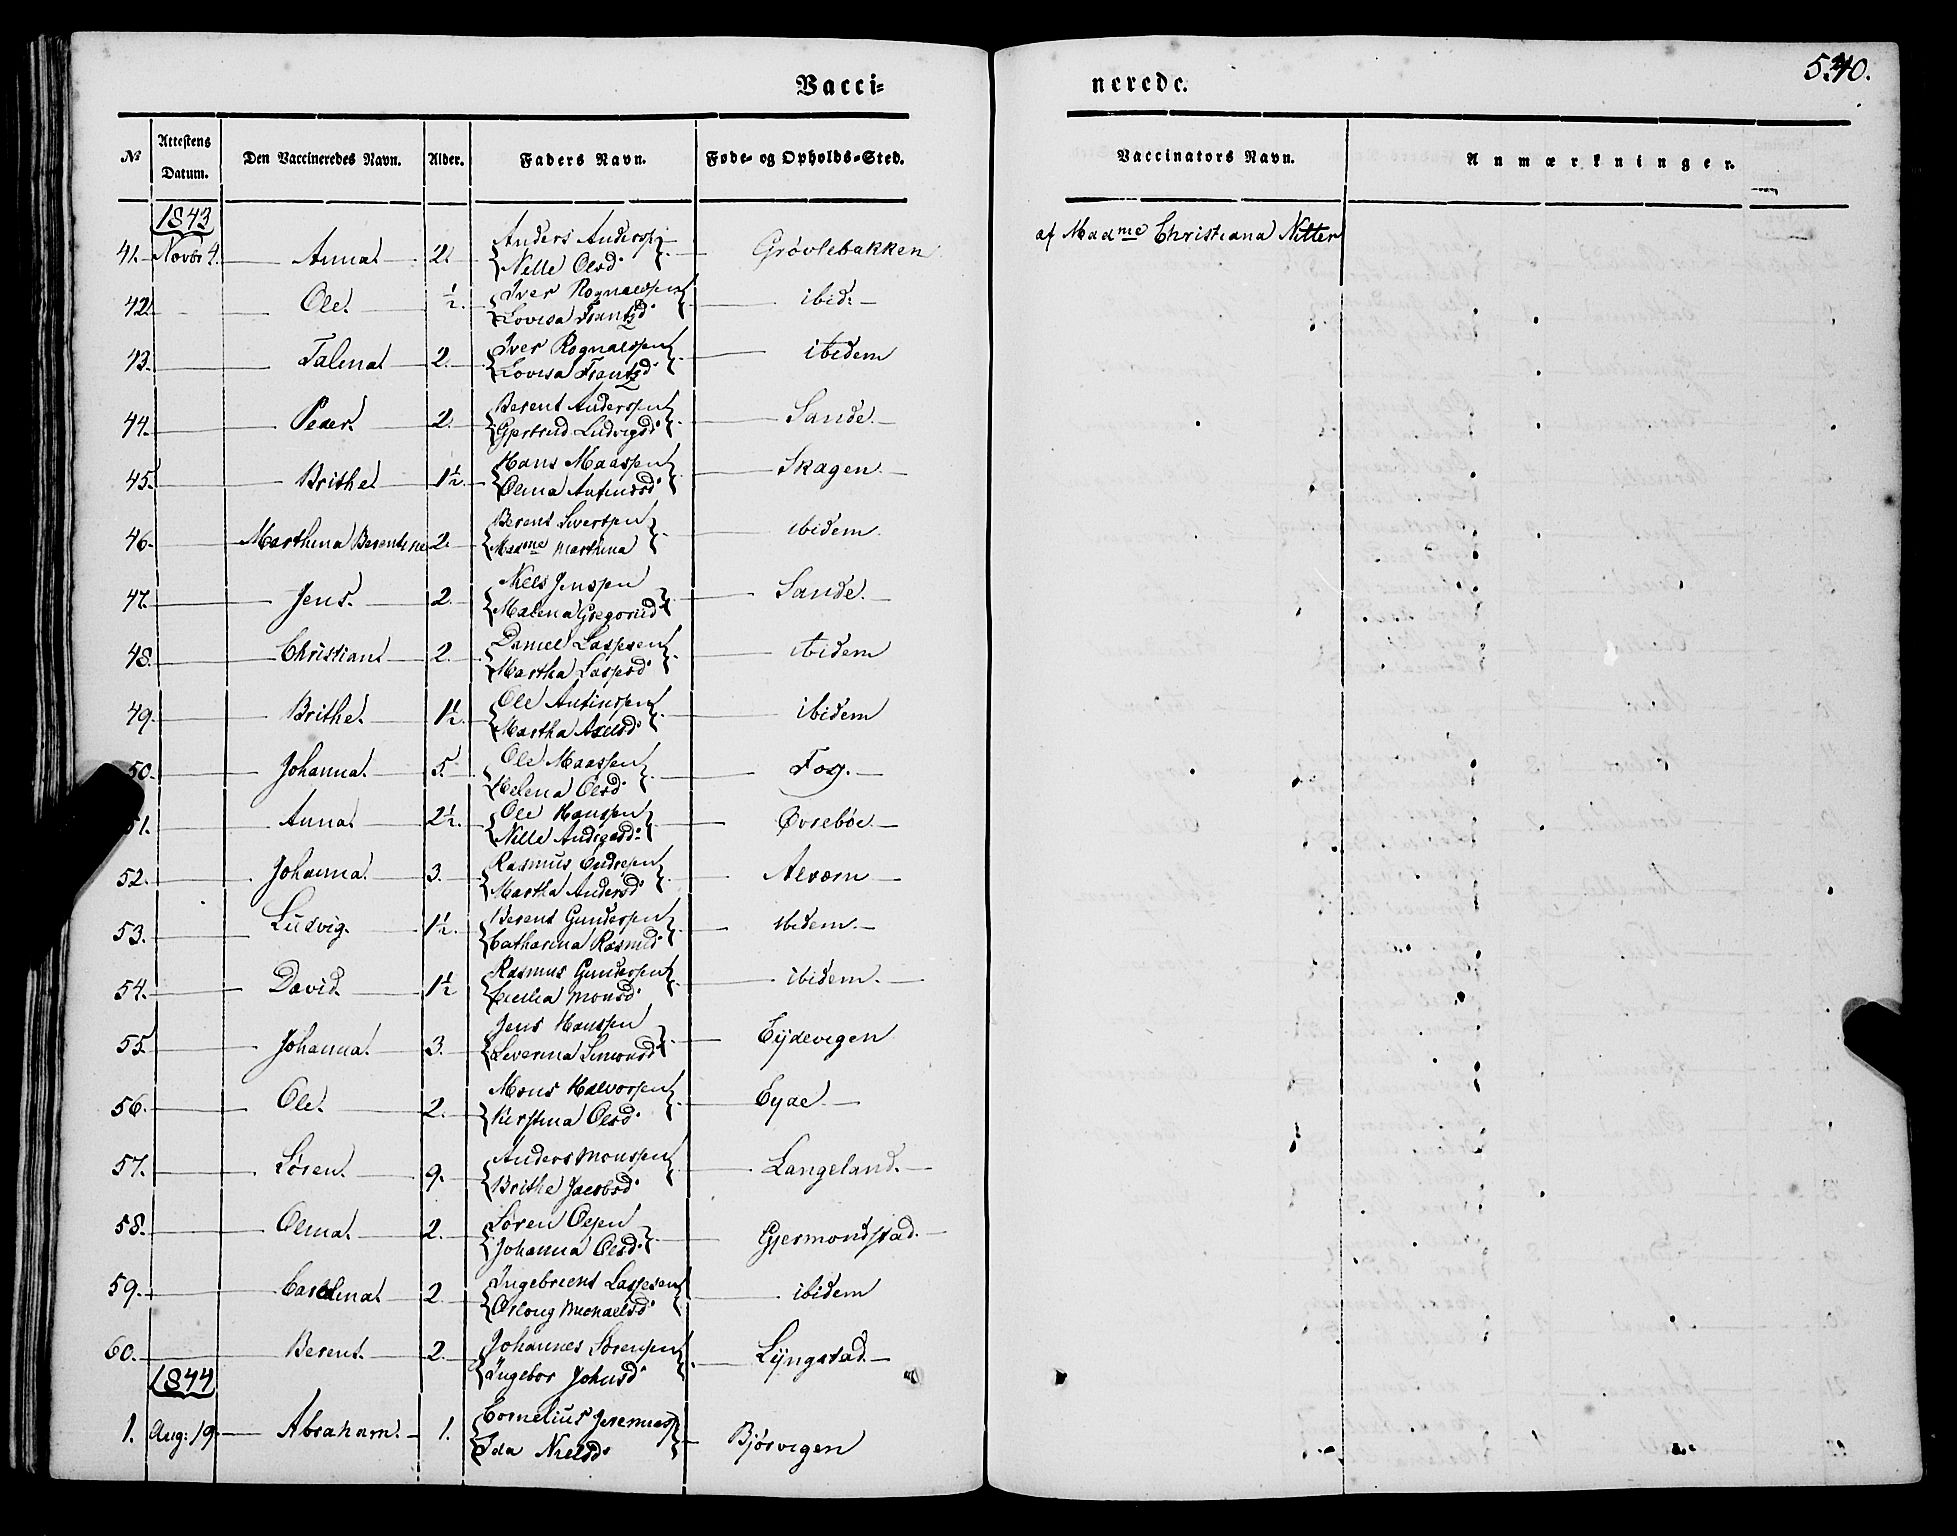 Vacci-
nerede.
540.
No Attestens Datum. Den Vaccineredes Navn. Alder. Faders Navn. Føde- og Opholds-Sted. Vaccinators Navn. Anmærkninger.
1843
41. Novbr 4. Anna 2. Anders Anderss. Nille Olsd. Grøvlebakken af Madme Christiana Nitter
42. Ole 1/2. Iver Rognalssen Lovisa Frantzd. ibid.
43. Talena 2. Iver Rognalssen Lovisa Frantzd. ibidem
44. Peder 2. Berent Anderssen Gjertrud Ludvigsd. Sande.
45. Brithe 1 1/2. Hans Maassen Olina Antinsd. Skagen.
46. Marthina Berentine 2. Berent Sivertsen Madme Marthina ibidem
47. Jens. 2. Niels Jenssen Malena Gregoriid. Sande.
48. Christian 2. Daniel Lassesen Martha Lassesd. ibidem
49. Brithe 1 1/2. Ole Antinssen Martha Axelsd. ibidem
50. Johanna 5. Ole Maassen Helena Olsd. Fog.
51. Anna 2 1/2. Ole Hanssen Nille Andsgd. Øvrebøe.
52. Johanna 3. Rasmus Endresen Martha Andersd. Alværn
53. Ludvig. 1 1/2. Berent Gunderssen Catharina Rasmd. ibidem.
54. David 1 1/2 Rasmus Gunderssen Cicilia Monsd. ibidem.
55. Johanna 3. Jens Hanssen Severina Simonsd. Eijdevigen
56. Ole 2. Mons Halvorssen Kerstina Olsd. Eyde
57. Søren 9. Anders Monssen Brithe Jacobsd. Langeland.
58. Olina 2. Søren Olsen Johanna Olsd. Gjermondstad.
59. Carolina 2 Ingebricht Lassesen Osloug Michaelsd. ibidem
60. Berent 2. Johannes Sørensen Ingebor Johnsd. Lijngstad.
1844
1. Aug: 19. Abraham 1. Cornelius Jeremiass. Ida Nielsd. Bjørvigen